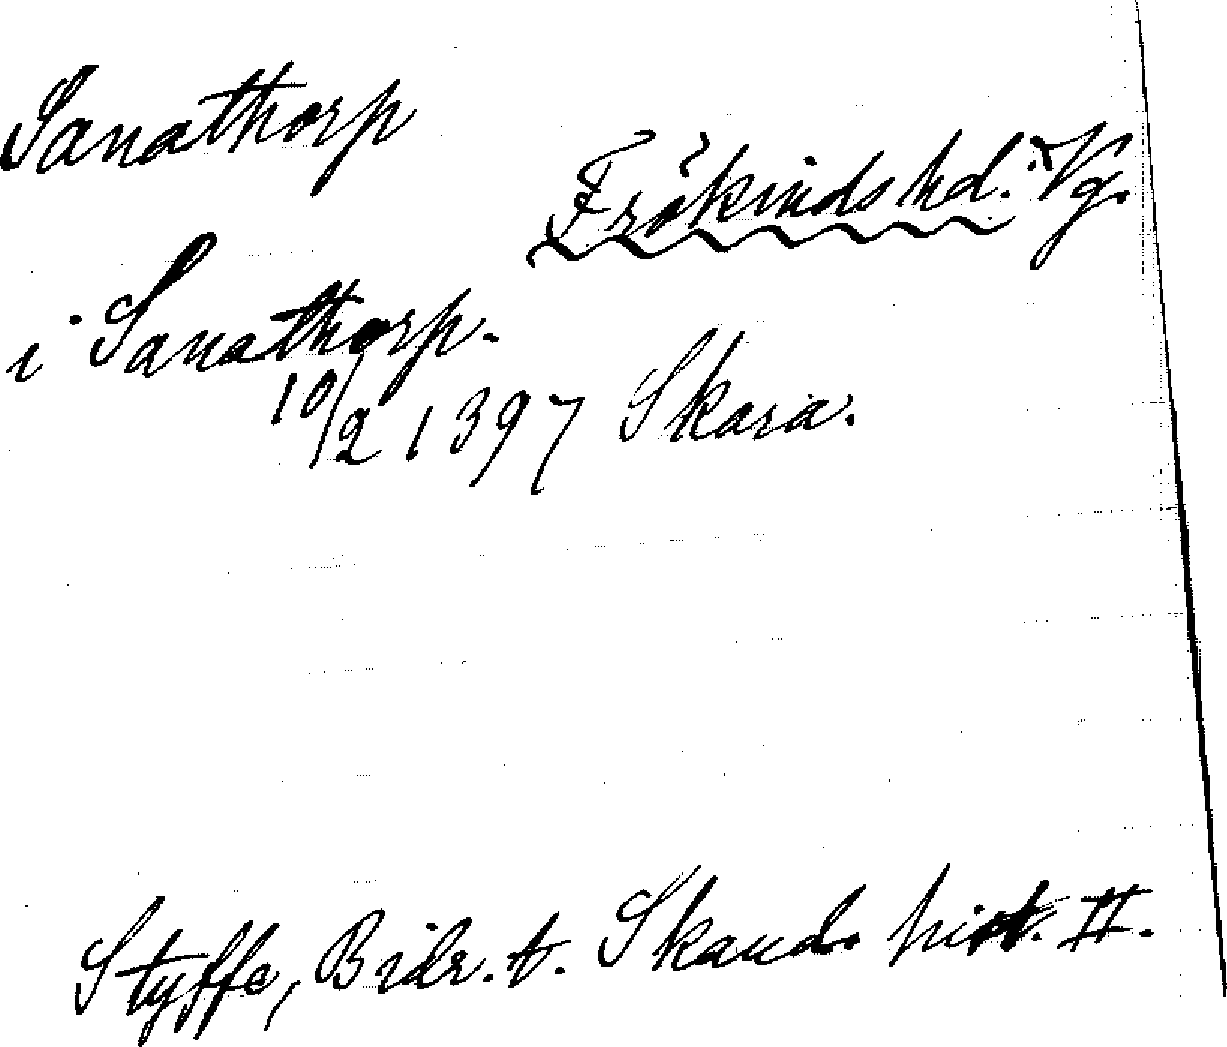 Sanathorp
Frökinds hd. Vg.
i Sanathorp.
10/2 1397 Skara.
Styffe, Bidr. t. Skand. hist. II.